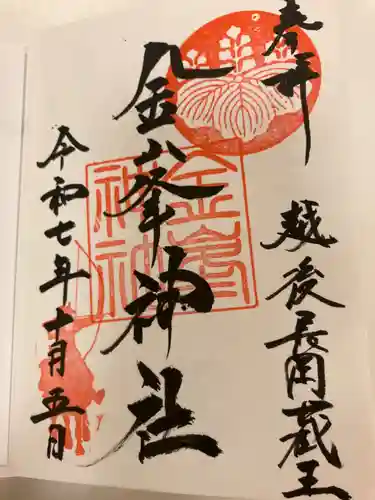 奉拝
越後長岡蔵王
金峯神社
令和七年十月五日